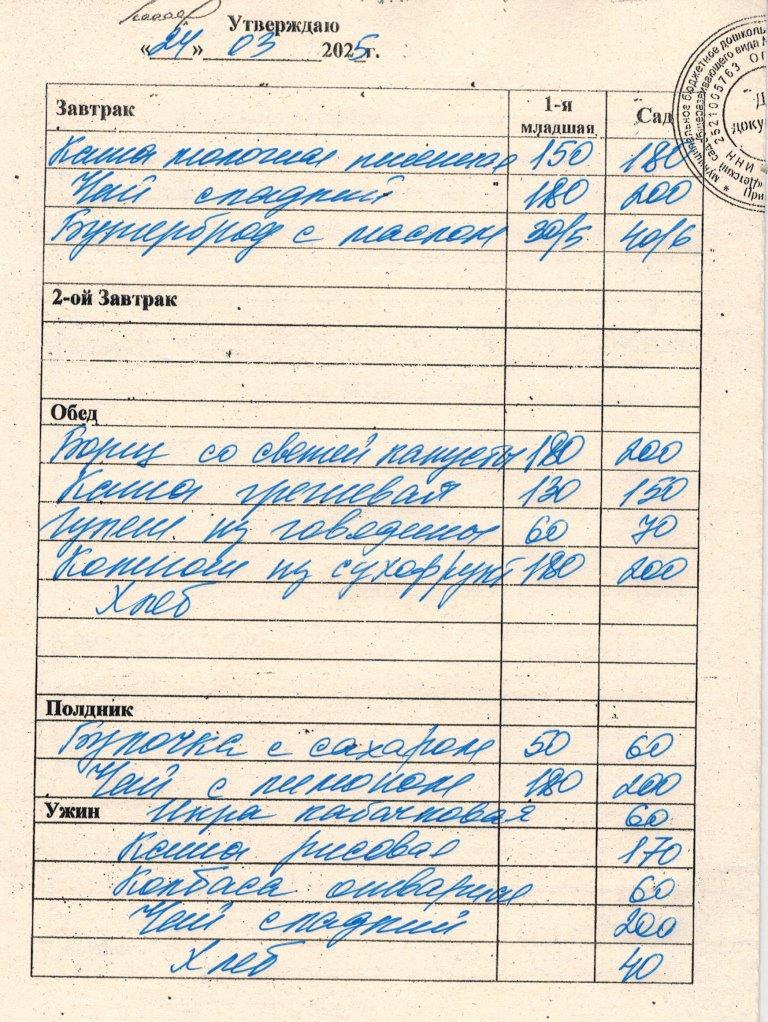 Утверждаю
«24» 03 2025г.
Завтрак 1-я младшая Сад
Каша молочная пшенная 150 180
Чай сладкий 180 200
Бутерброд с маслом 30/5 40/6
2-ой Завтрак
Обед
Борщ со свежей капусты 180 200
Каша гречневая 130 150
Гуляш из говядины 60 70
Компот из сухофрукт 180 200
Хлеб
Полдник
Булочка с сахаром 50 60
Чай с лимоном 180 200
Ужин Икра кабачковая 60
Каша рисовая 170
Колбаса отварная 60
Чай сладкий 200
Хлеб 40
муниципальное бюджетное дошколь
общеразвивающего вида
ИНН 2521005763